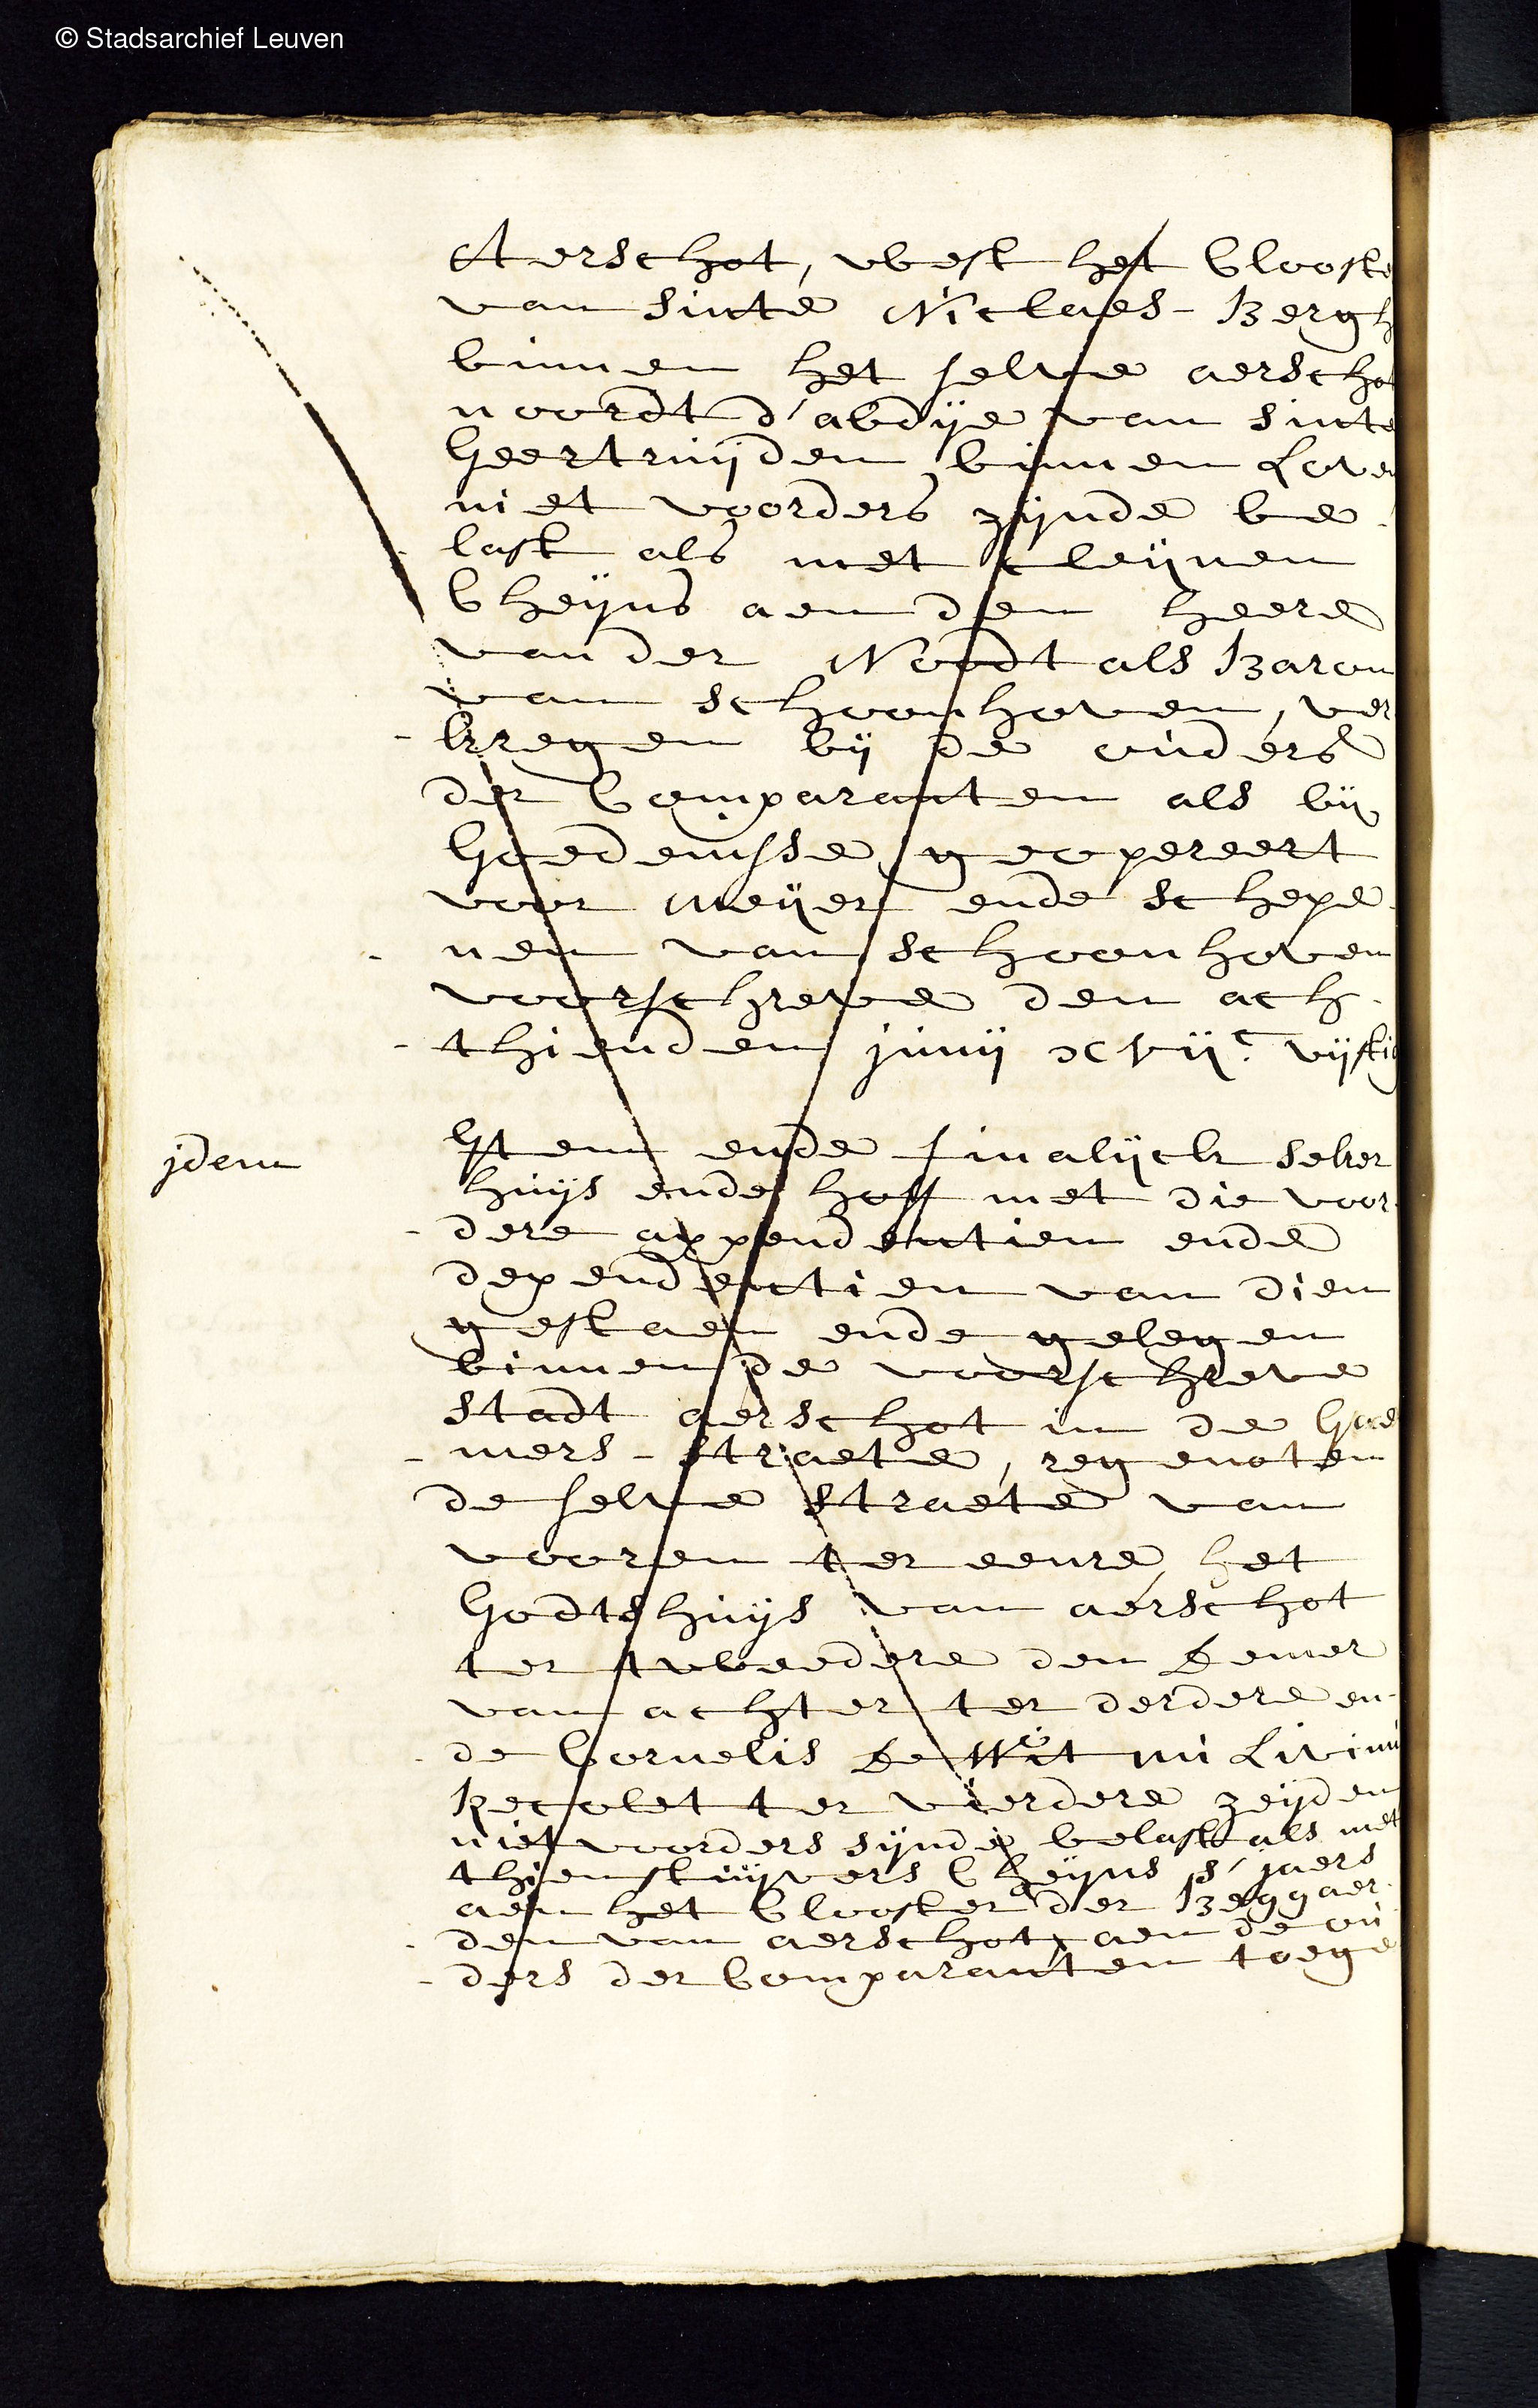 © Stadsarchief Leuven
Aerschot, west het Clooste
van sinte Niclaes-Bergh
binnen het selve aerschot
noordt d'abdije van sinte
Geertruijden binnen Loven
niet voorders zijnde be
last als met cleijnen
Cheijns aen den heere
vander Noodt als Baron
van schoonhoven, ver
kregen bij de ouders
der Comparanten als bij
Goedenisse geopereert
voor meijer ende schepe
nen van schoonhoven
voorschreve den ach
thienden junij xvijc. vijftig
jdem
Item ende finalijck seker
huijs ende hoff met die voor
dere appendentien ende
dependentien van dien
gestaen ende gelegen
binnen de voorschreve
stadt aerschot in de
mers-straete, regenoten
de selve straete van
vooren ter eenre, het
Godtshuijs van aerschot
ter tweedere den Demer
van achter ter derdere en
de Cornelis De Wit nu
ter vierdere zeijden
niet voorders sijnde belast als met
thien stuijvers Cheijns s'jaers
aen het Clooster der Beggaer
den van aerschot, aen de ou
ders der Comparanten toege